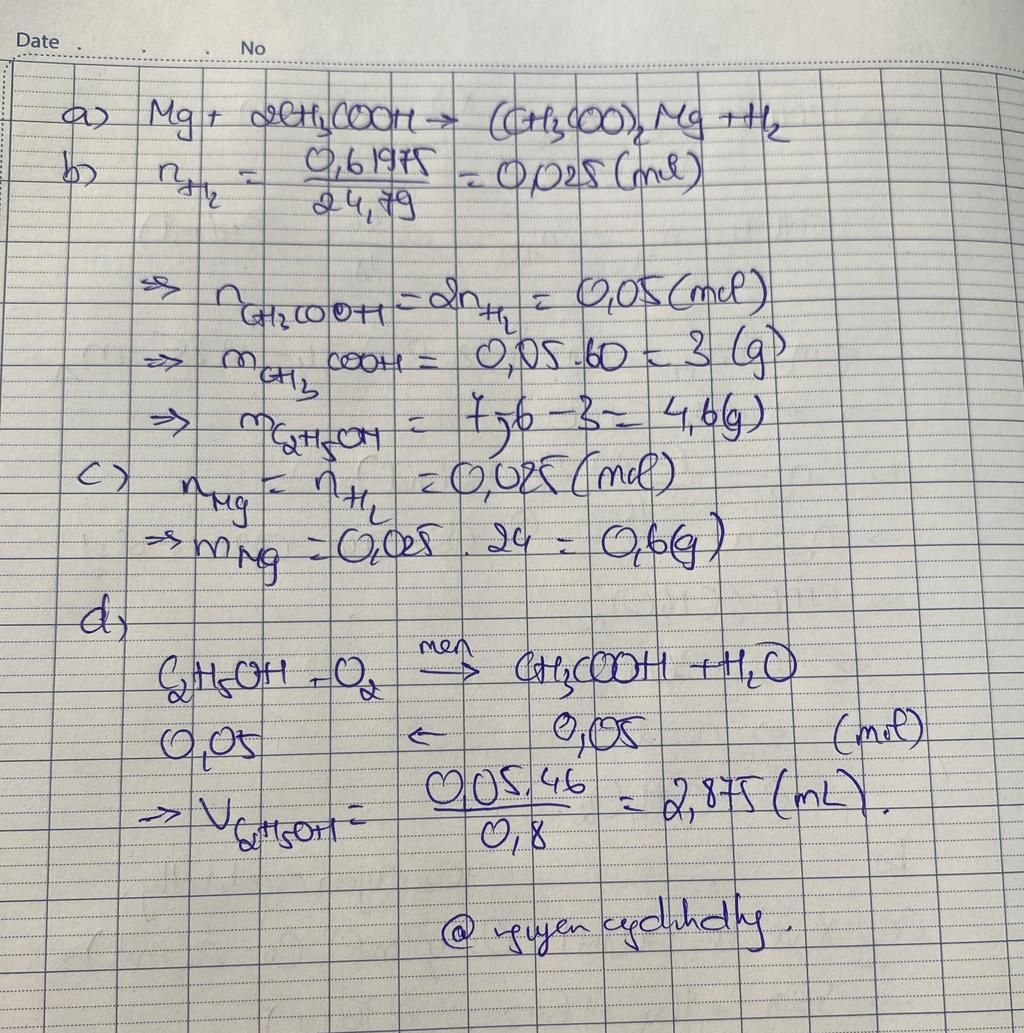 Date . . . No
a) Mg + 2CH₃COOH → (CH₃COO)₂Mg + H₂
b) n_H₂ = 0,61975 / 24,79 = 0,025 (mol)
=> n_CH₃COOH = 2n_H₂ = 0,05 (mol)
=> m_CH₃COOH = 0,05.60 = 3 (g)
=> m_C₂H₅OH = 7,6 - 3 = 4,6 (g)
c) n_Mg = n_H₂ = 0,025 (mol)
=> m_Mg = 0,025 . 24 = 0,6 (g)
d)
C₂H₅OH + O₂ men → CH₃COOH + H₂O
0,05 ← 0,05 (mol)
=> V_C₂H₅OH = 0,05.46 / 0,8 = 2,875 (mL).
@ nguyen